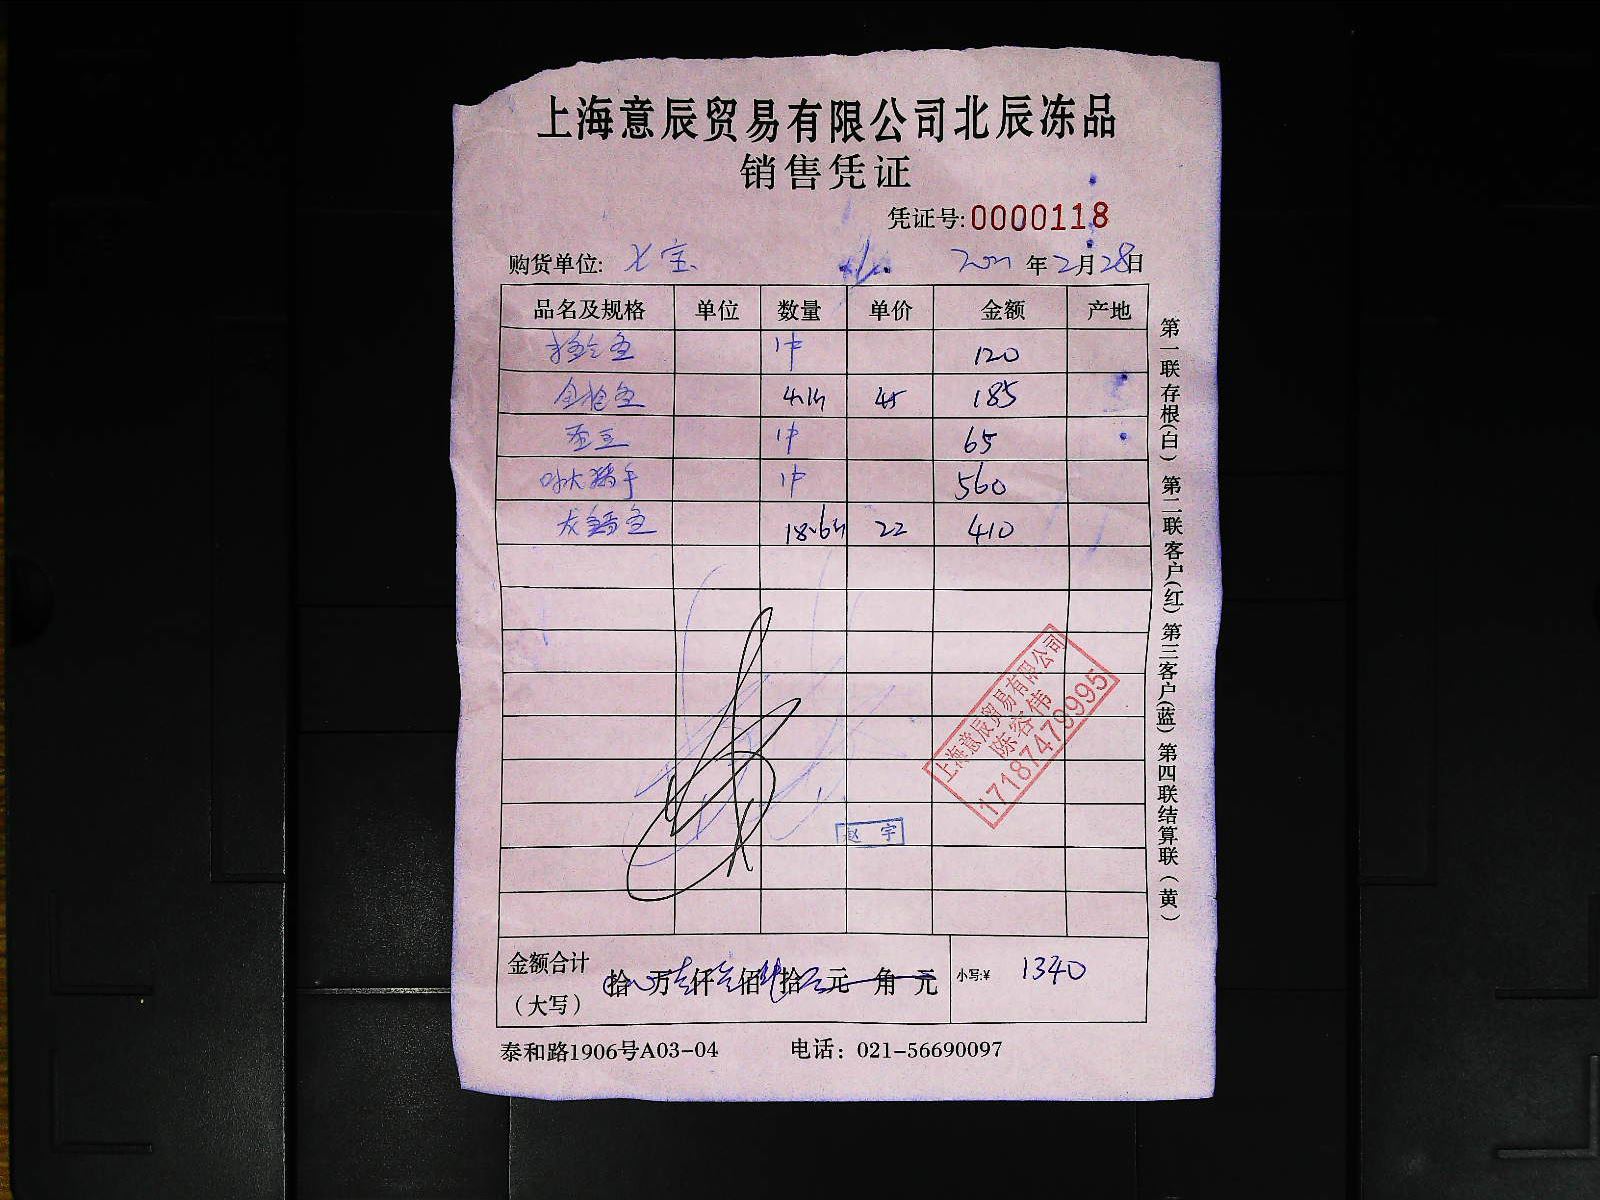 上海意辰贸易有限公司北辰冻品
销售凭证
凭证号:0000118
购货单位: 七宝 年2月28日
品名及规格 单位 数量 单价 金额 产地
1件 120
185
1件 65
1件 560
龙 鱼 18.6 22 410
上海意辰贸易有限公司
陈容伟
17187470995
赵宇
金额合计
(大写)
拾 万 仟 佰 拾 元 角 元 小写:¥ 1340
泰和路1906号A03-04 电话: 021-56690097
第一联存根(白) 第二联客户(红) 第三客户(蓝) 第四联结算联(黄)